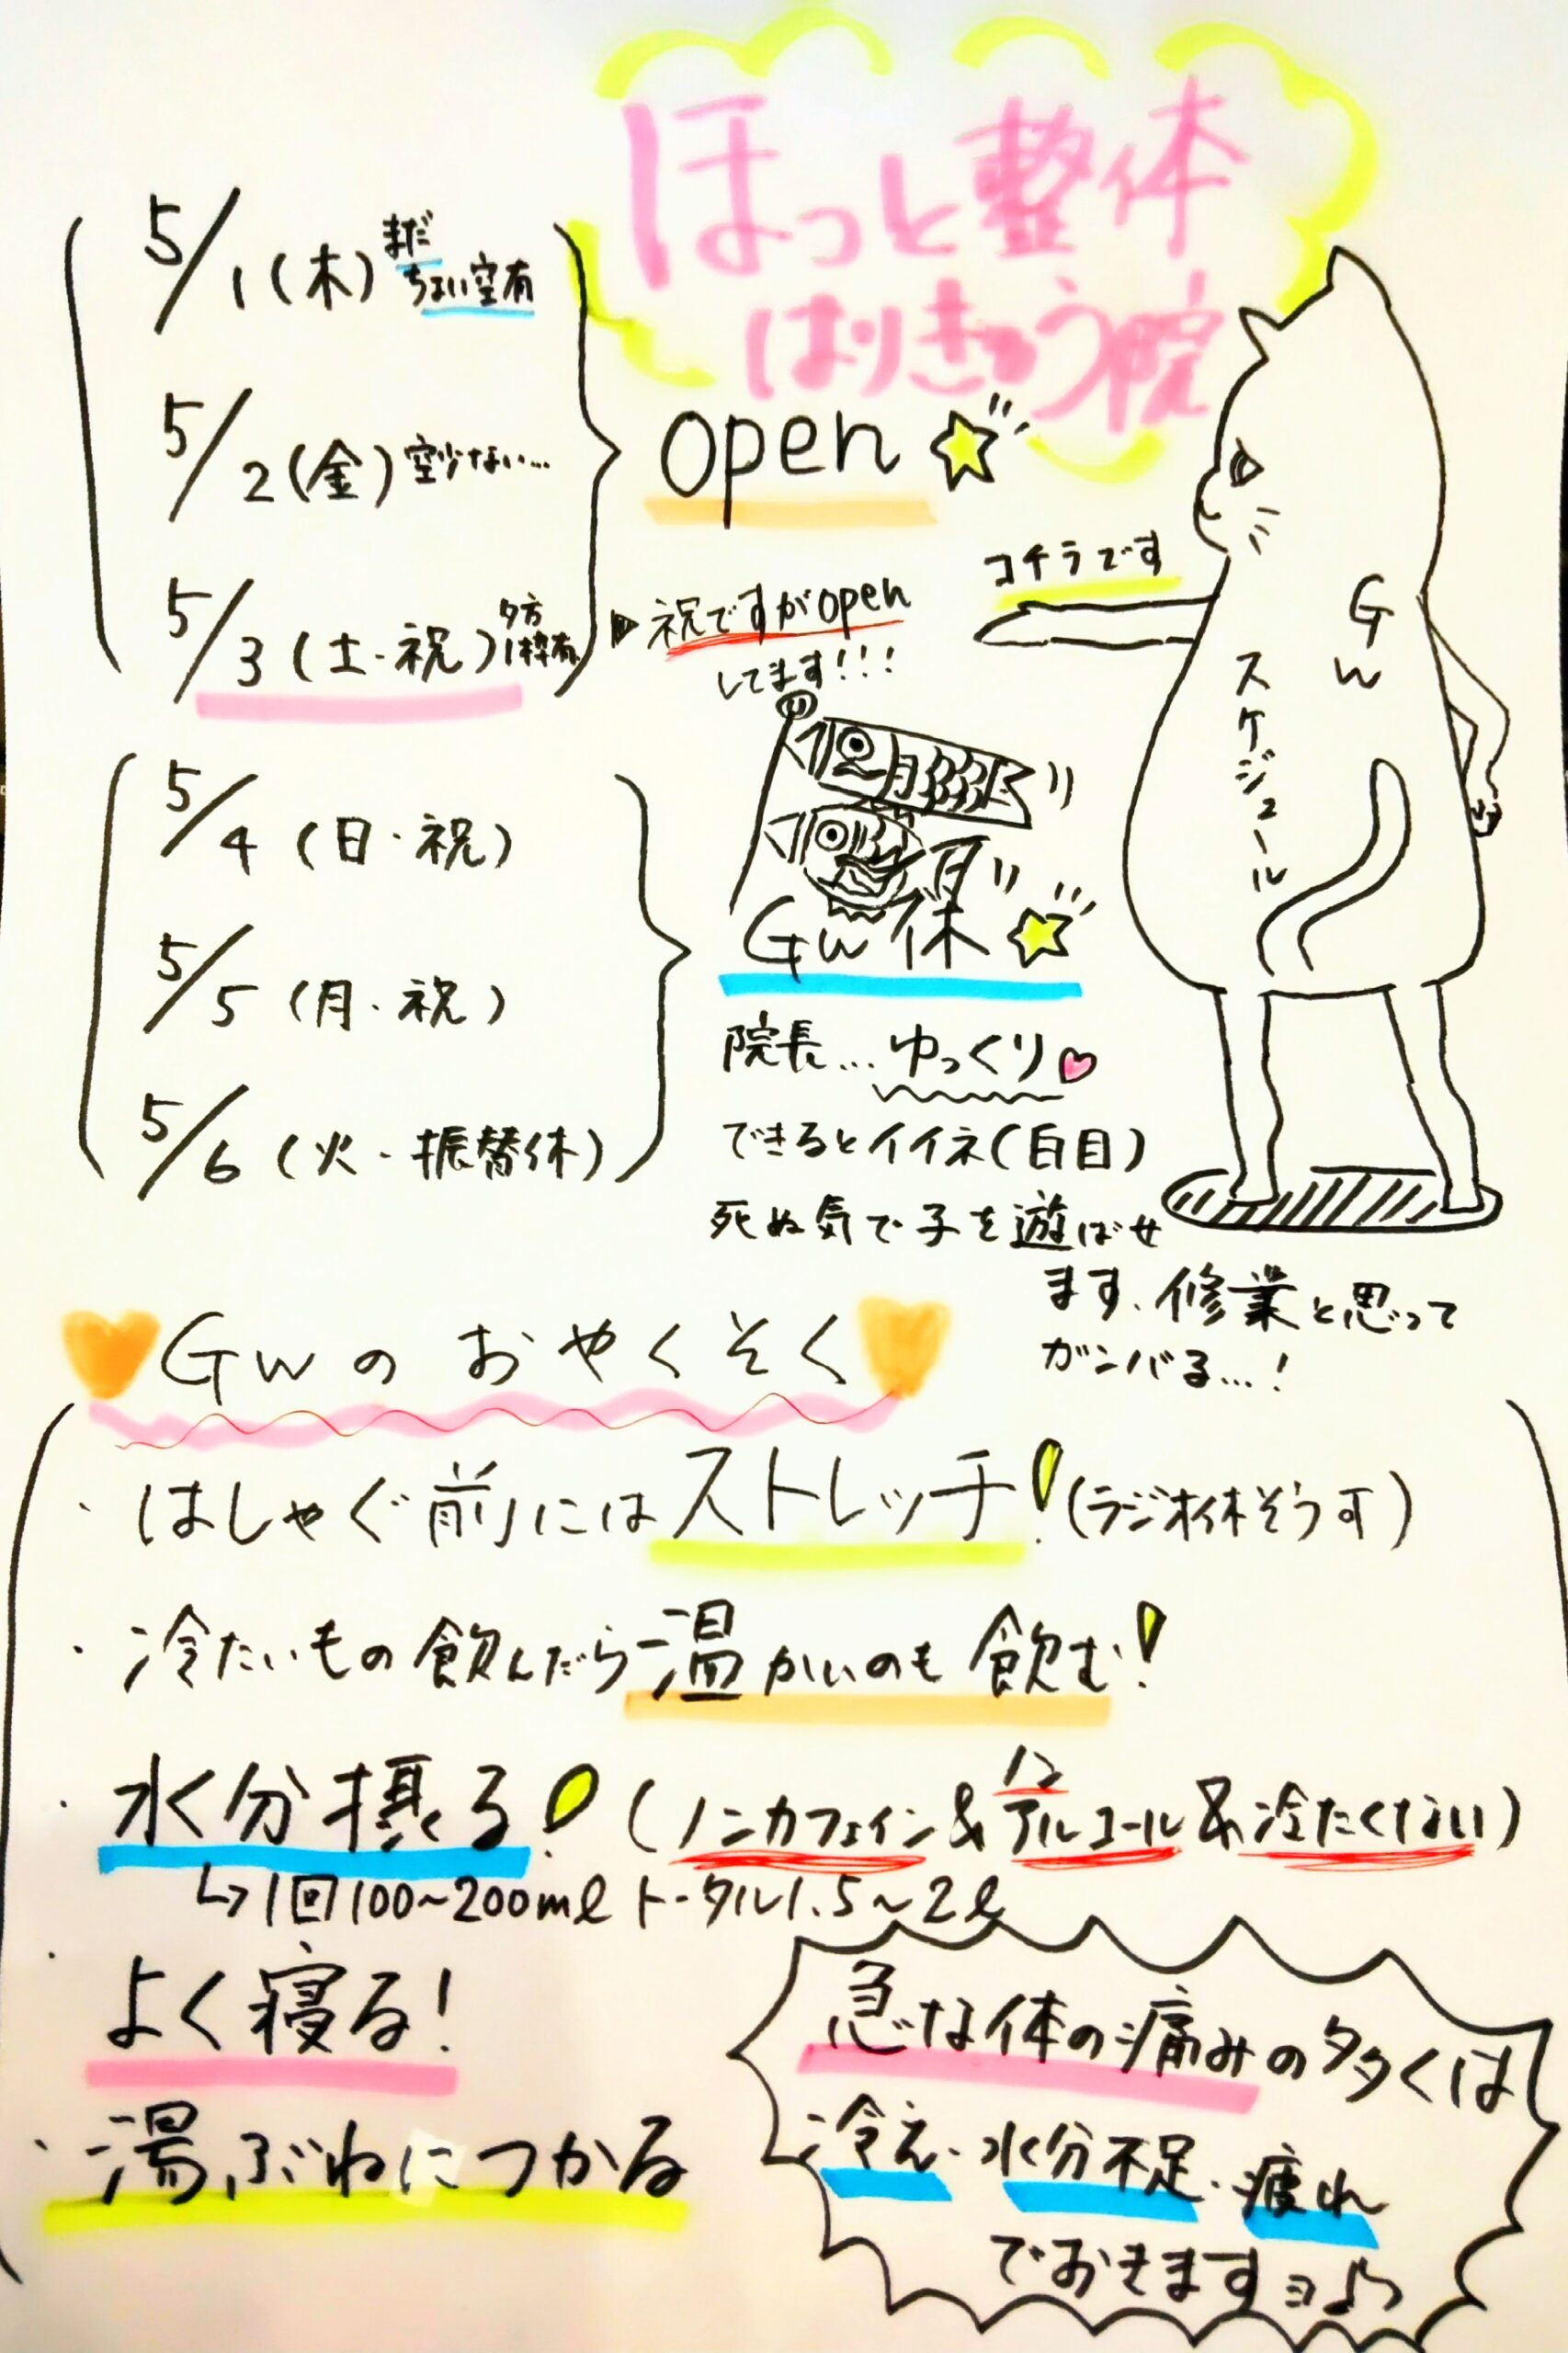 ほっと整体
はりきゅう院
5/1(木)まだ
ちょい空有
5/2(金)空少ない…
open
5/3(土・祝)夕方
1枠有
祝ですがopen
してます!!!
コチラです
GW
スケジュール
5/4(日・祝)
5/5(月・祝)
5/6(火・振替休)
GW休
院長…ゆっくり
できるとイイネ(白目)
死ぬ気で子を遊ばせ
ます、修業と思って
ガンバる…!
GWのおやくそく
・はしゃぐ前にはストレッチ!(ラジオ体そう可)
・冷たいもの飲んだら温かいのも飲む!
・水分摂る!(ノンカフェイン&ノンアルコール&冷たくない)
↳1回100~200ml トータル1.5~2ℓ
・よく寝る!
・湯ぶねにつかる
急な体の痛みの多くは
冷え・水分不足・疲れ
でおきますョ♪